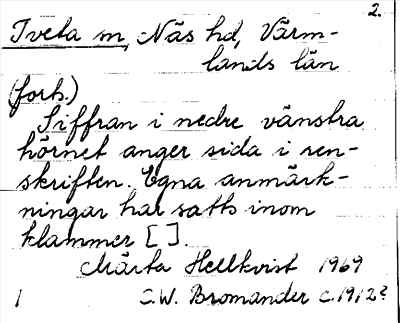 2.
Tveta sn, Näs hd, Värm-
lands län
(forts.)
Siffran i nedre vänstra
hörnet anger sida i ren-
skriften. Egna anmärk-
ningar har satts inom
klammer [ ].
Märta Hellkvist 1969
1 C.W. Bromander c.1912?